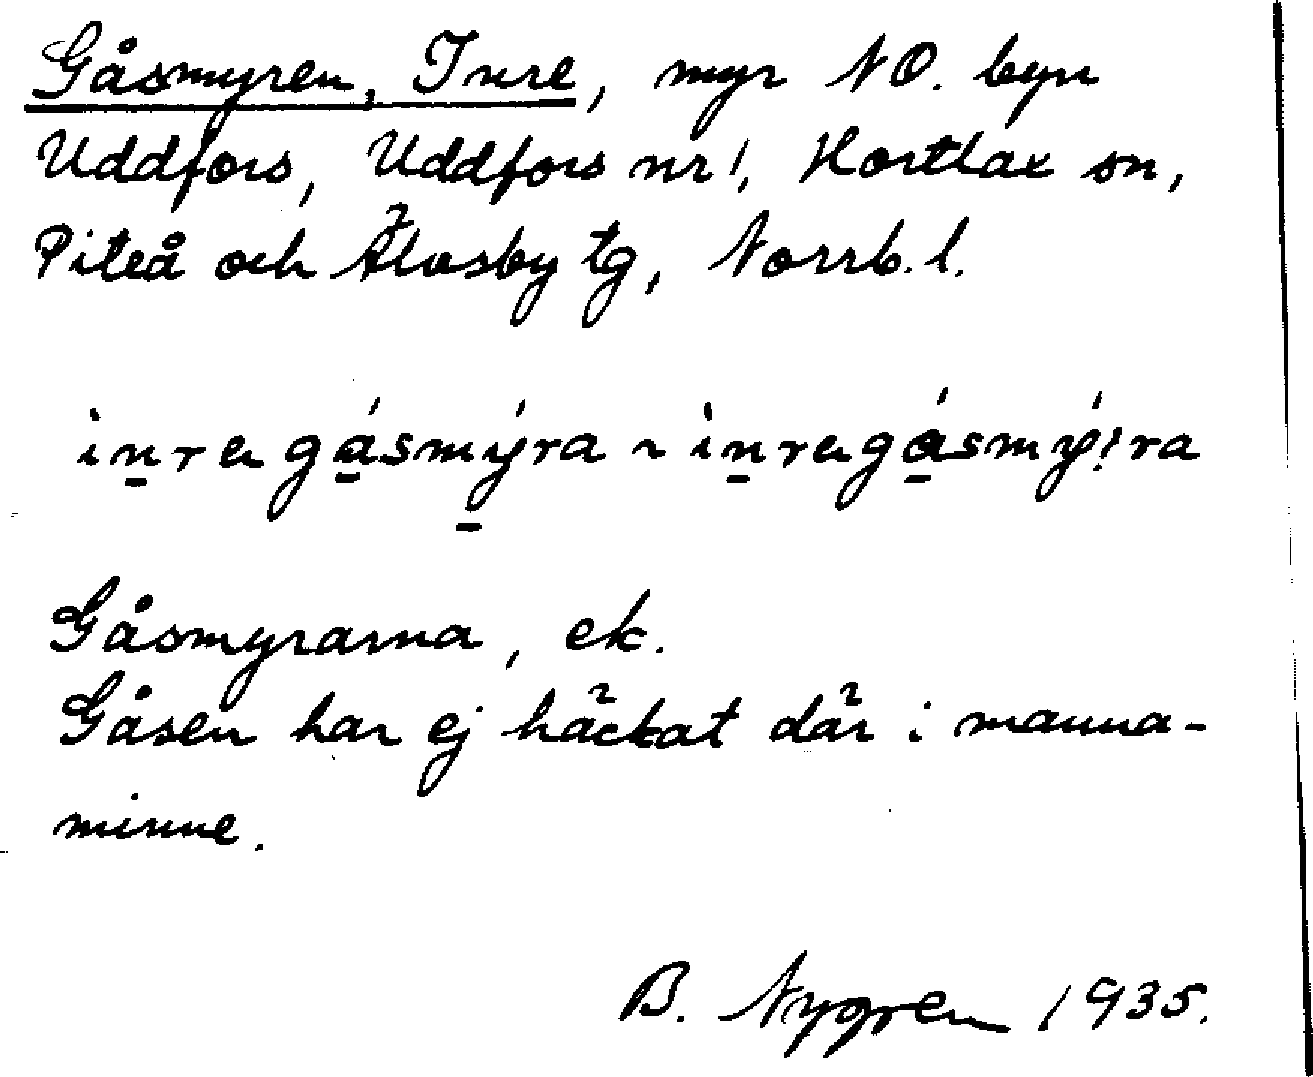 Gåsmyren, Inre, myr NO. byn
Uddfors, Uddfors nr 1, Hortlax sn,
Piteå och Älvsby tg, Norrb. l.
Gåsmyrarna, ek.
Gåsen har ej häckat där i manna-
minne.
B. Nygren 1935.